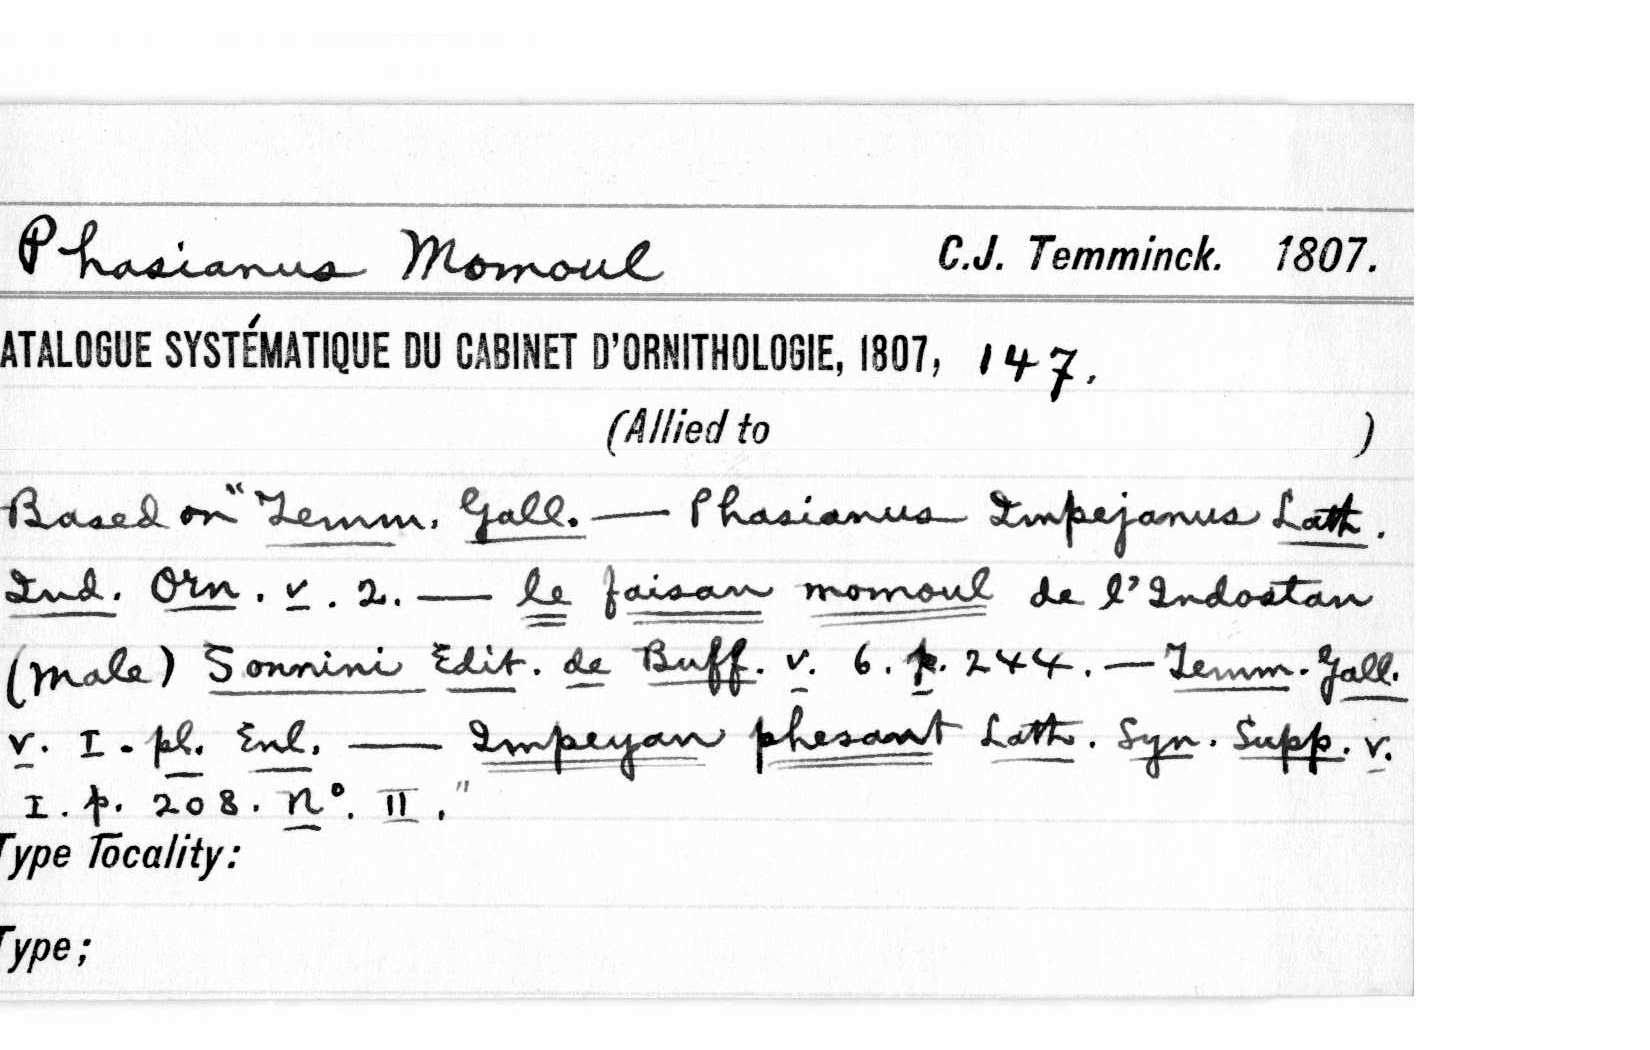 Phasianus Momoul C.J. Temminck. 1807.
ATALOGUE SYSTÉMATIQUE DU CABINET D'ORNITHOLOGIE, 1807, 147.
(Allied to )
Based on "Temm. Gall. — Phasianus Impejanus Lath.
Ind. Orn. v. 2. — le faisan momoul de l'Indostan
(male) Sonnini Edit. de Buff. v. 6. p. 244. — Temm. Gall.
v. I. pl. Enl. — Impeyan phesant Lath. Syn. Supp. v.
I. p. 208. No. II."
Type Tocality:
Type;